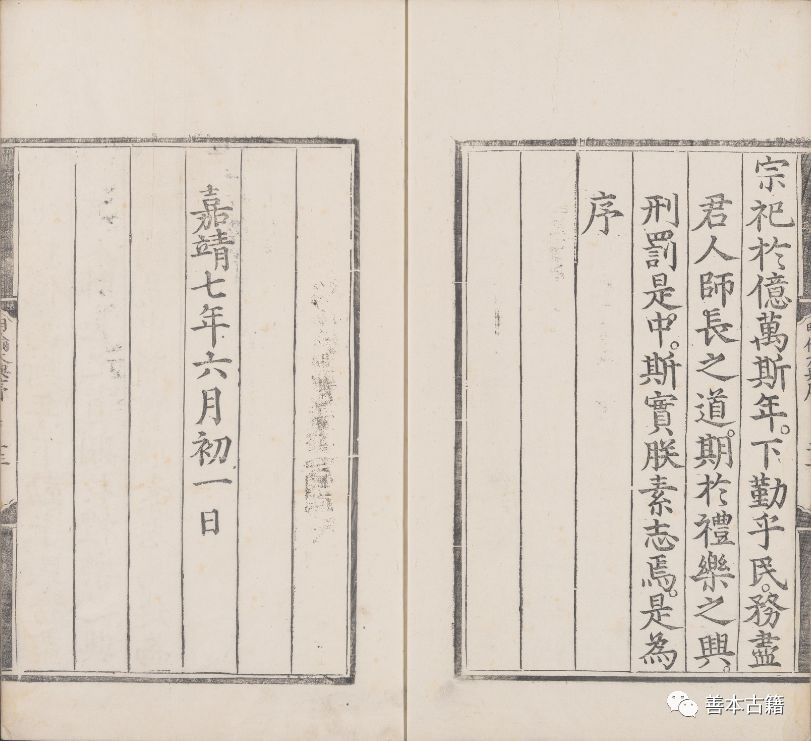 宗祀於億萬斯年。下勤乎民。務盡
君人師長之道。期於禮樂之興。
刑罰是中。斯實朕素志焉。是為
序
嘉靖七年六月初一日
善本古籍